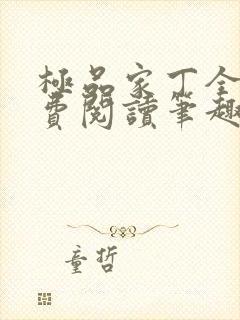 極品家丁全
費閱讀筆趣
童哲